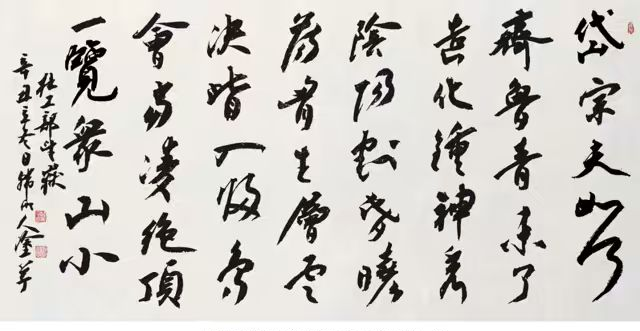 岱宗夫如何
齊魯青未了
造化鍾神秀
陰陽割昏曉
蕩胷生層雲
決眥入歸鳥
會當凌絕頂
一覽眾山小
杜工部望嶽
辛丑 日 人